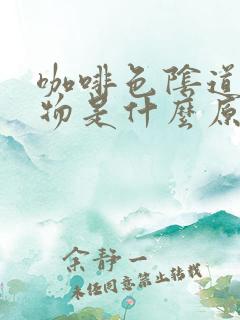 咖啡色陰道
物是什麼原
余靜一
未经同意禁止转载